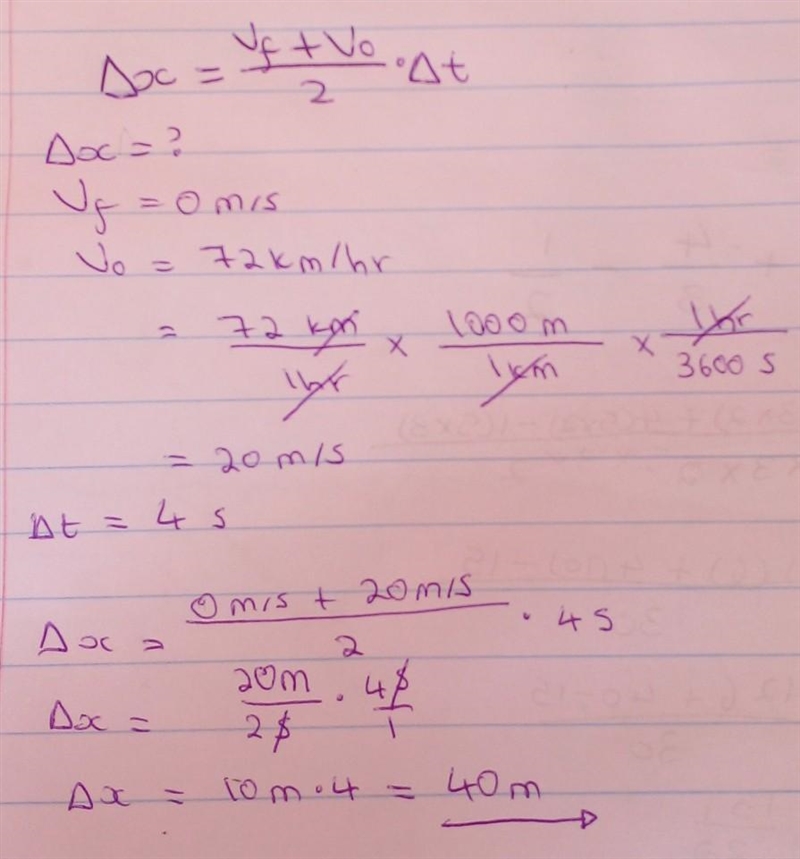 Δx = (Vf + Vo)/2 · Δt
Δx = ?
Vf = 0 m/s
Vo = 72 km/hr
= 72 km/1hr × 1000 m/1km × 1hr/3600 s
= 20 m/s
Δt = 4 s
Δx = (0 m/s + 20 m/s)/2 · 4 s
Δx = 20m/2s · 4s/1
Δx = 10 m · 4 = 40 m